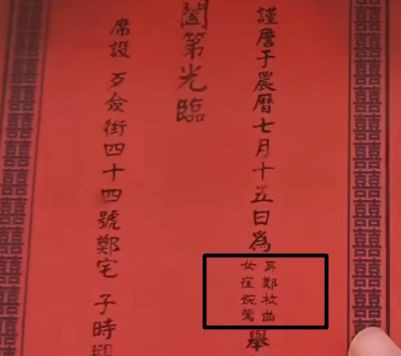 謹詹于農曆七月十五日為
男鄭枚曲
女崔婉鶯
舉
闔第光臨
席設 歹僉街四十四號鄭宅 子時觀